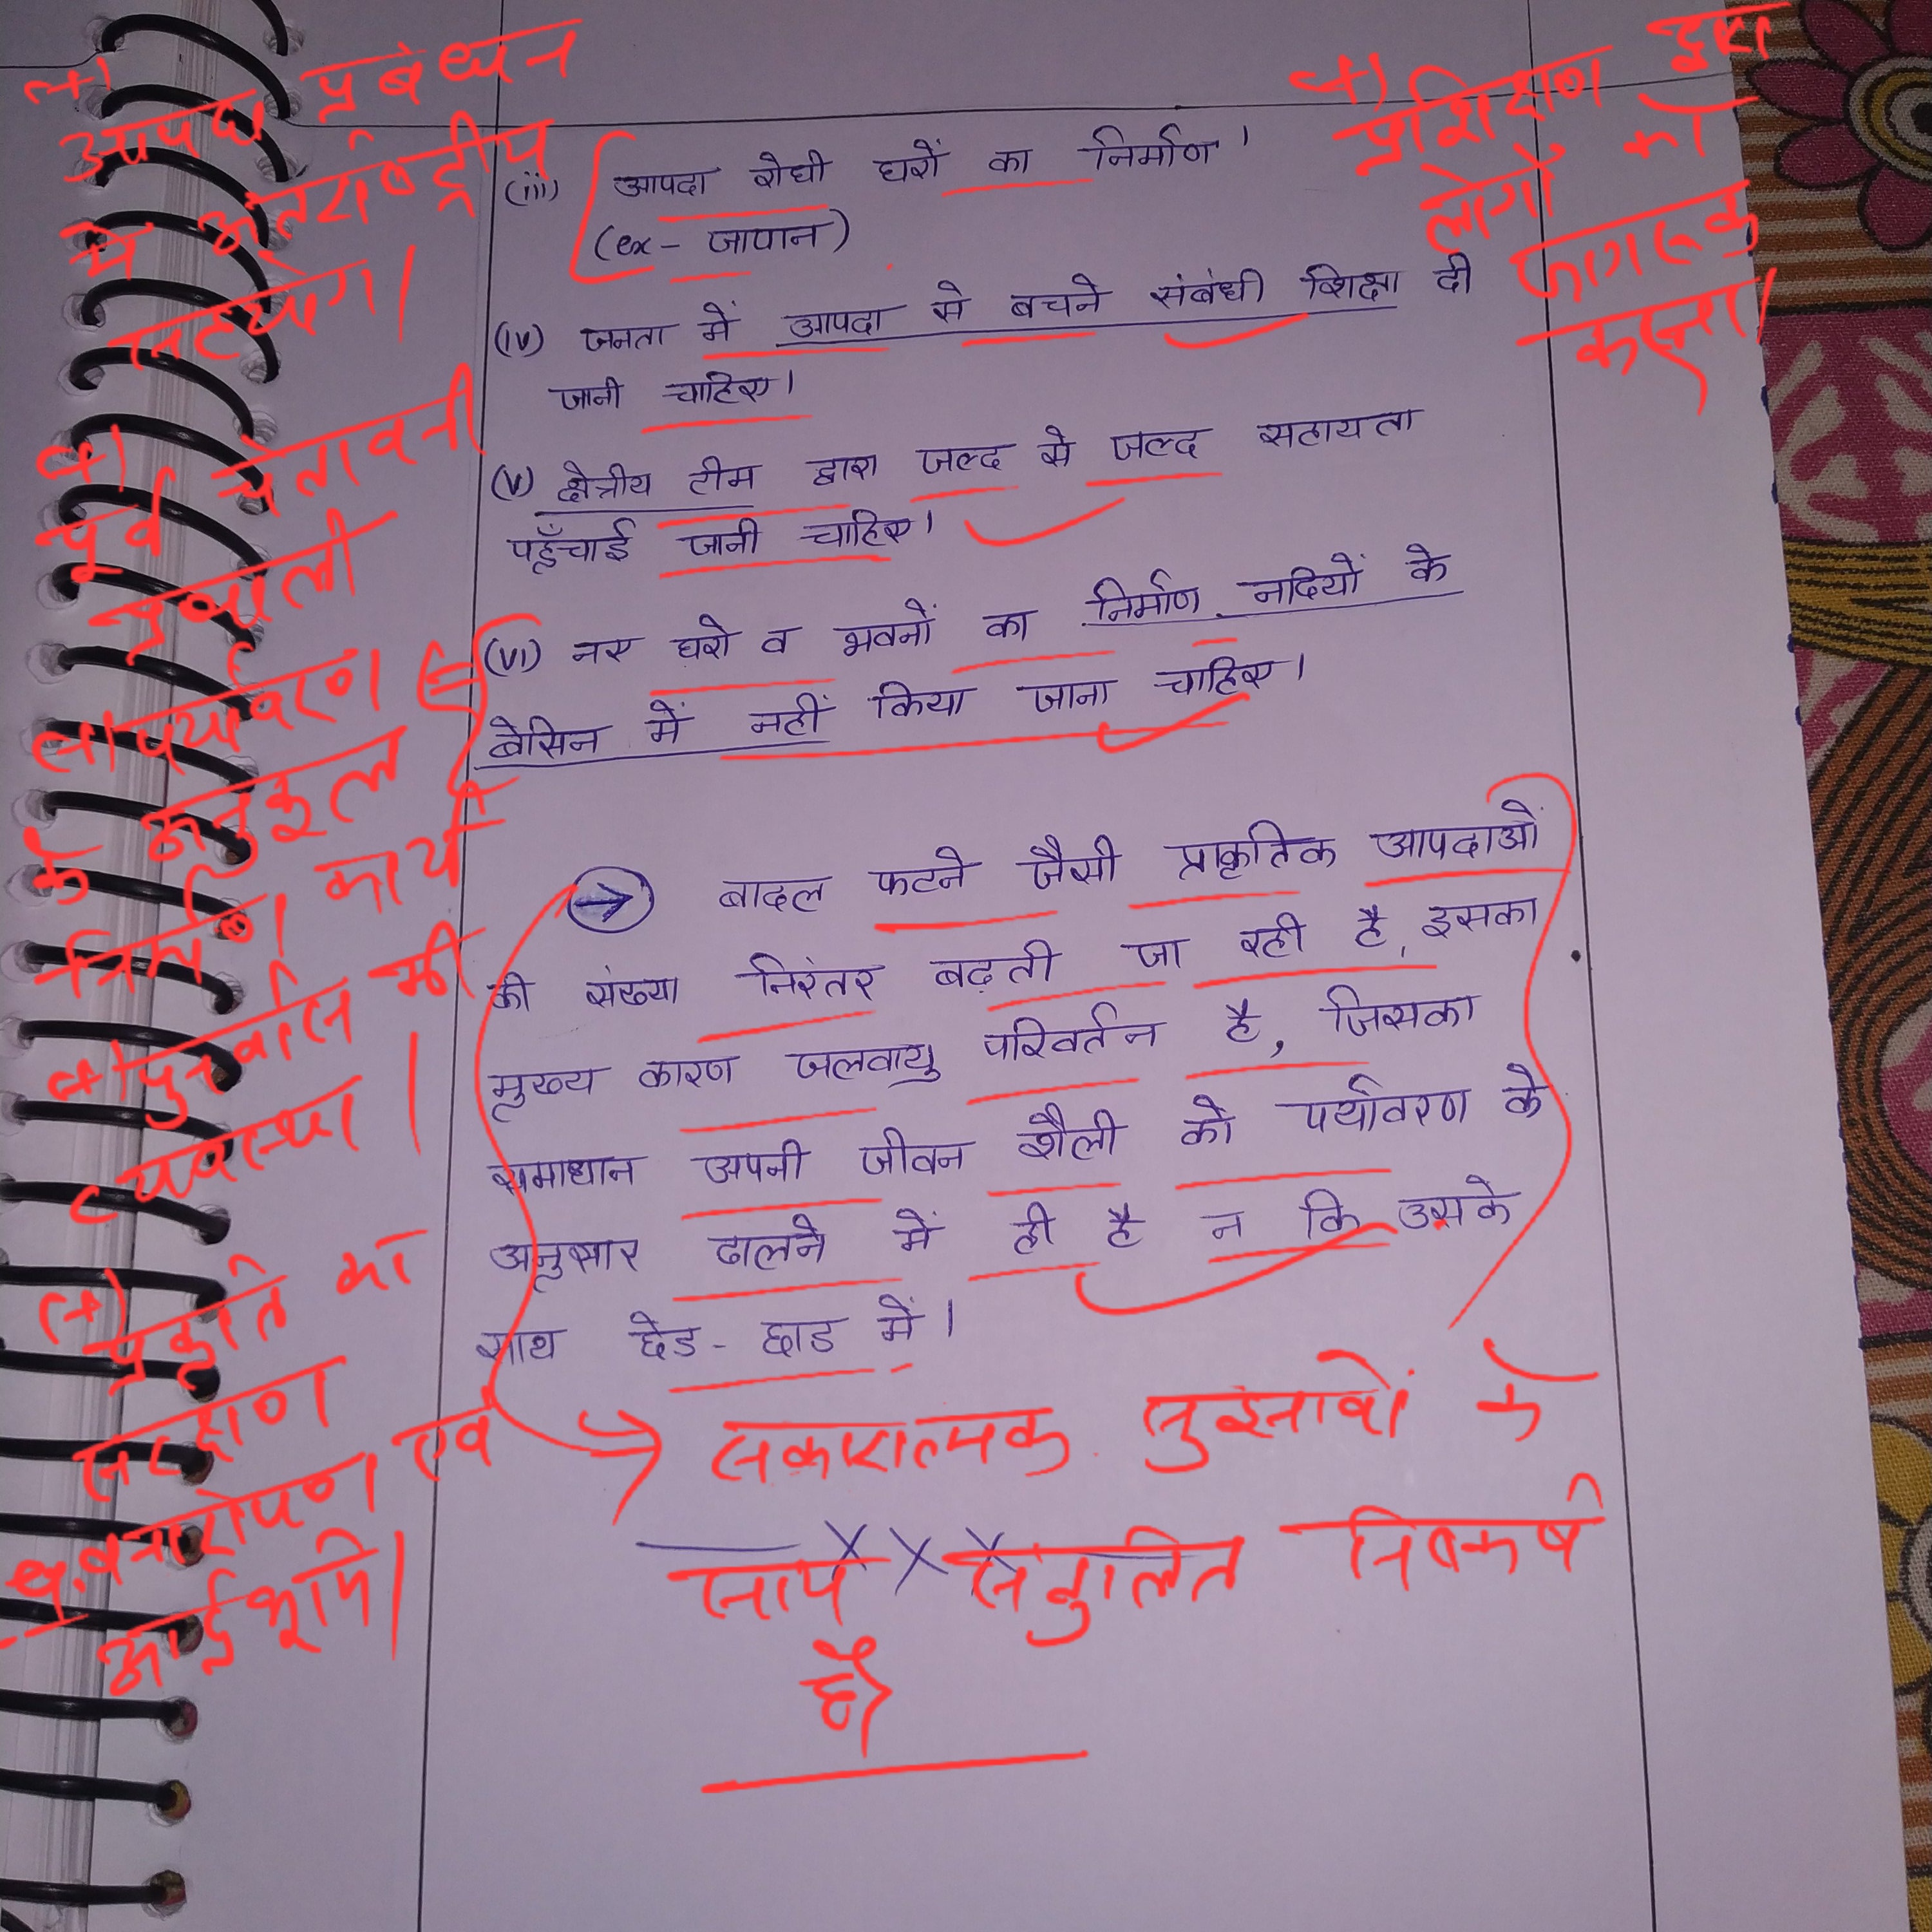 (iii) आपदा रोधी घरों का निर्माण।
(ex - जापान)
(iv) जनता में आपदा से बचने संबंधी शिक्षा दी
जानी चाहिए।
(v) क्षेत्रीय टीम द्वारा जल्द से जल्द सहायता
पहुँचाई जानी चाहिए।
(vi) नए घरो व भवनों का निर्माण नदियों के
बेसिन में नहीं किया जाना चाहिए।
→ बादल फटने जैसी प्राकृतिक आपदाओं
की संख्या निरंतर बढ़ती जा रही है, इसका
मुख्य कारण जलवायु परिवर्तन है, जिसका
समाधान अपनी जीवन शैली को पर्यावरण के
अनुसार ढालने में ही है न कि उसके
साथ छेड-छाड में।
→ सकारात्मक सुझावों के
साथ संतुलित निष्कर्ष
है
आपदा प्रबंधन
में अंतर्राष्ट्रीय
सहयोग।
पूर्व चेतावनी
प्रणाली
पर्यावरण
के अनुकूल
निर्माण कार्य
पुनर्वास की
व्यवस्था।
प्रकृति का
संरक्षण
वनारोपण एवं
आर्द्रभूमि।
प्रशिक्षण द्वारा
लोगों को
जागरूक
करना।